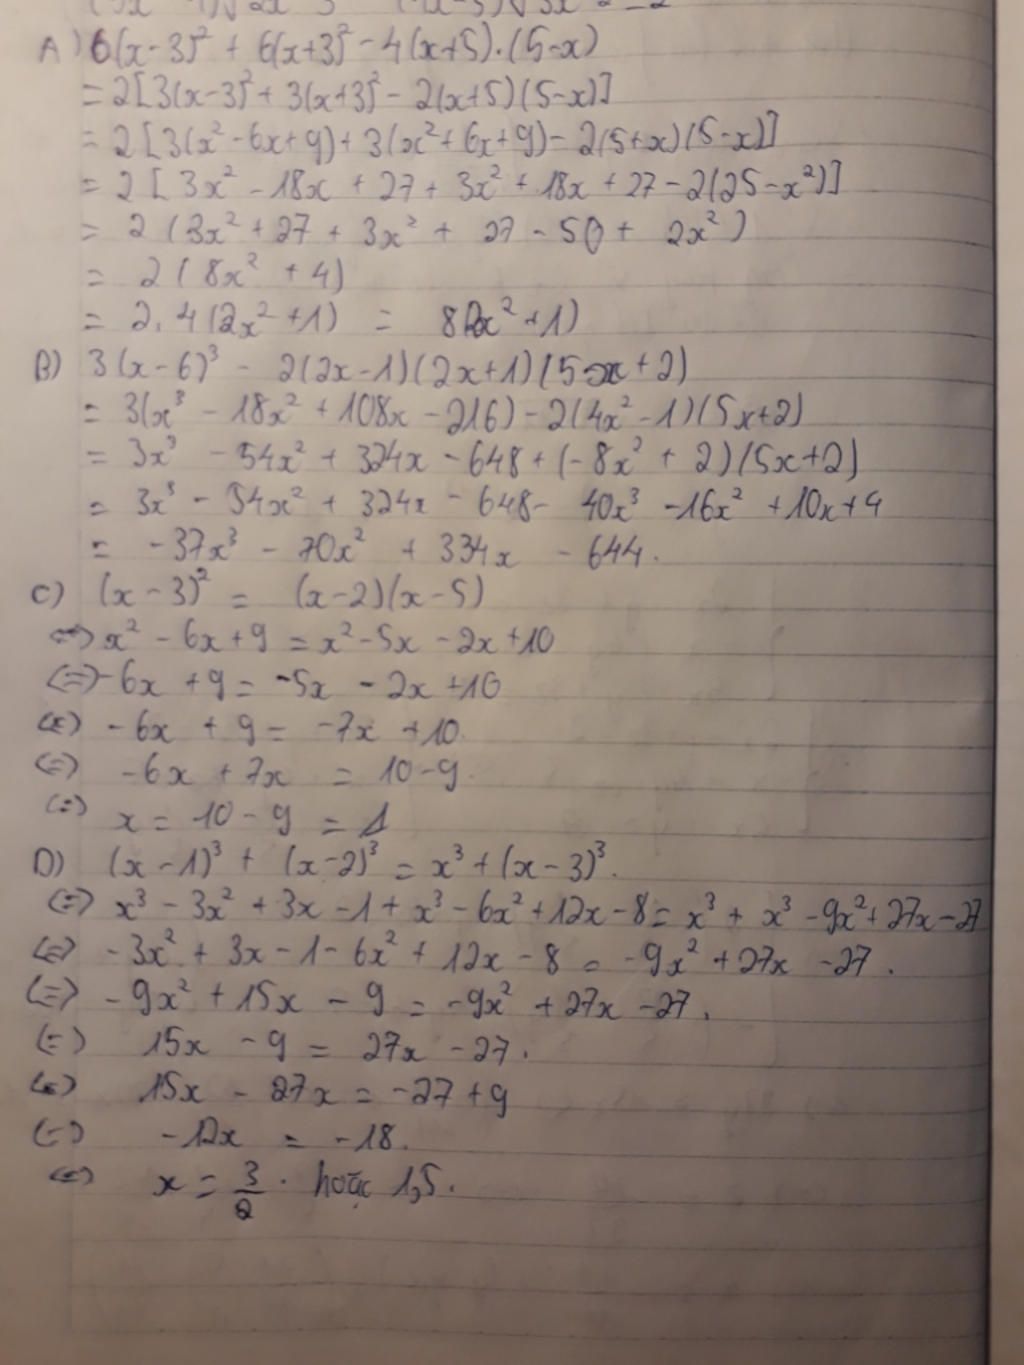 A) 6(x-3)² + 6(x+3)² - 4(x+5).(5-x)
= 2[3(x-3)² + 3(x+3)² - 2(x+5)(5-x)]
= 2[3(x² - 6x + 9) + 3(x² + 6x + 9) - 2(5+x)(5-x)]
= 2[3x² - 18x + 27 + 3x² + 18x + 27 - 2(25 - x²)]
= 2(3x² + 27 + 3x² + 27 - 50 + 2x²)
= 2(8x² + 4)
= 2.4(2x² + 1) = 8(2x² + 1)
B) 3(x - 6)³ - 2(2x - 1)(2x + 1)(5x + 2)
= 3(x³ - 18x² + 108x - 216) - 2(4x² - 1)(5x + 2)
= 3x³ - 54x² + 324x - 648 + (-8x² + 2)(5x + 2)
= 3x³ - 54x² + 324x - 648 - 40x³ - 16x² + 10x + 4
= -37x³ - 70x² + 334x - 644.
C) (x - 3)² = (x - 2)(x - 5)
(=) x² - 6x + 9 = x² - 5x - 2x + 10
(=) -6x + 9 = -5x - 2x + 10
(=) -6x + 9 = -7x + 10.
(=) -6x + 7x = 10 - 9.
(=) x = 10 - 9 = 1
D) (x - 1)³ + (x - 2)³ = x³ + (x - 3)³.
(=) x³ - 3x² + 3x - 1 + x³ - 6x² + 12x - 8 = x³ + x³ - 9x² + 27x - 27
(=) -3x² + 3x - 1 - 6x² + 12x - 8 = -9x² + 27x - 27.
(=) -9x² + 15x - 9 = -9x² + 27x - 27.
(=) 15x - 9 = 27x - 27.
(=) 15x - 27x = -27 + 9
(=) -12x = -18.
(=) x = 3/2. hoặc 1,5.